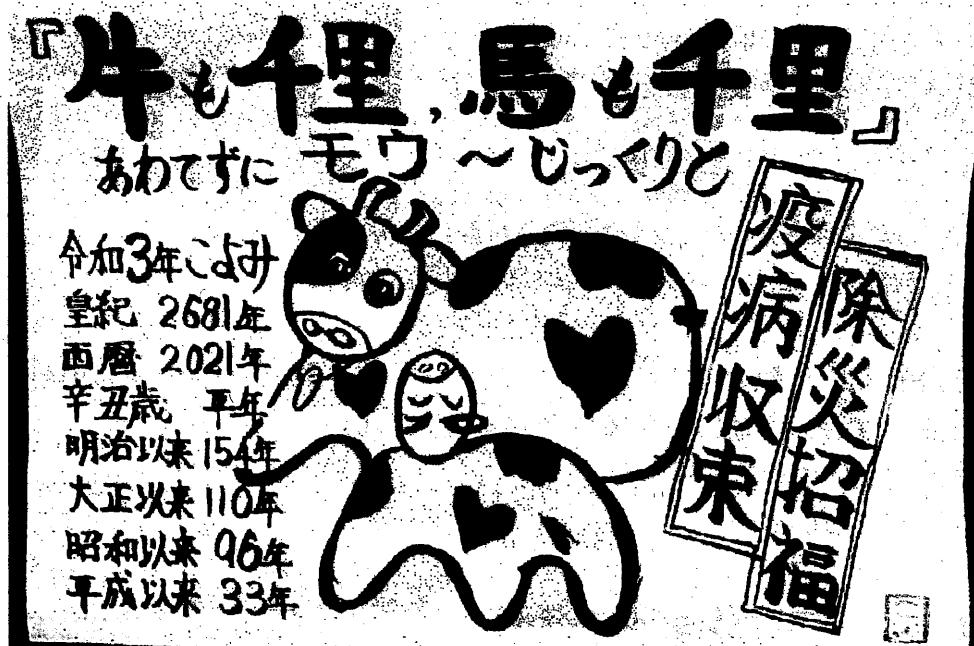 『牛も千里、馬も千里』
あわてずに モウ～じっくりと
令和3年こよみ
皇紀 2681年
西暦 2021年
辛丑歳 平年
明治以来 154年
大正以来 110年
昭和以来 96年
平成以来 33年
疫病収束
除災招福